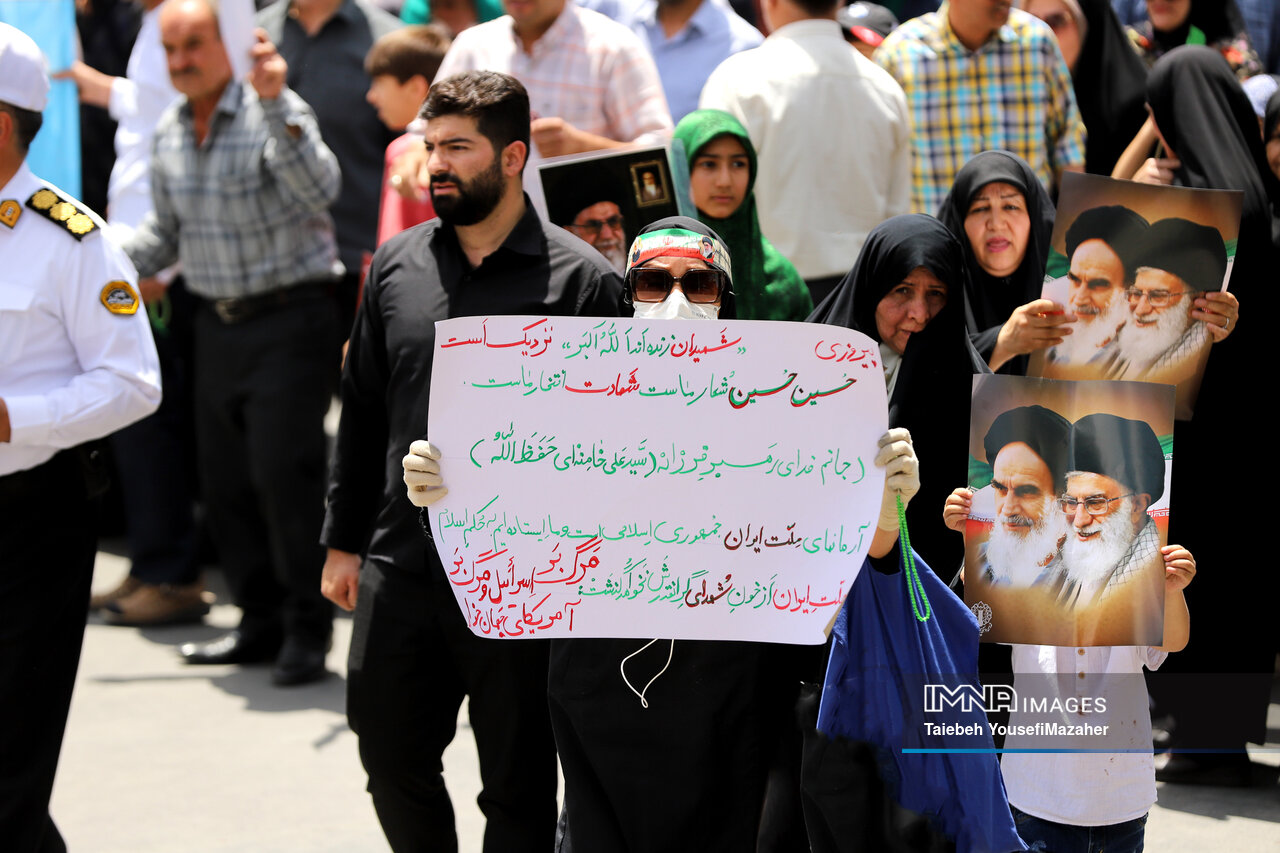 پیروزی
«شهیدان زنده اند اللّه اکبر» نزدیک است
حسین حسین شعار ماست شهادت افتخار ماست.
(جانم فدای رهبر فرزانه (سیّد علی خامنه‌ای حَفَظَ اللّه)
آرمانهای ملّت ایران جمهوری اسلامی است و ما ایستاده ایم به حکم اسلام
ملّت ایران از خونِ شهدای گرانقدرش نخواهد گذشت:
مرگ بر اسرائیل و مرگ بر
آمریکای جهان خوار
IMNA IMAGES
Taiebeh YousefiMazaher